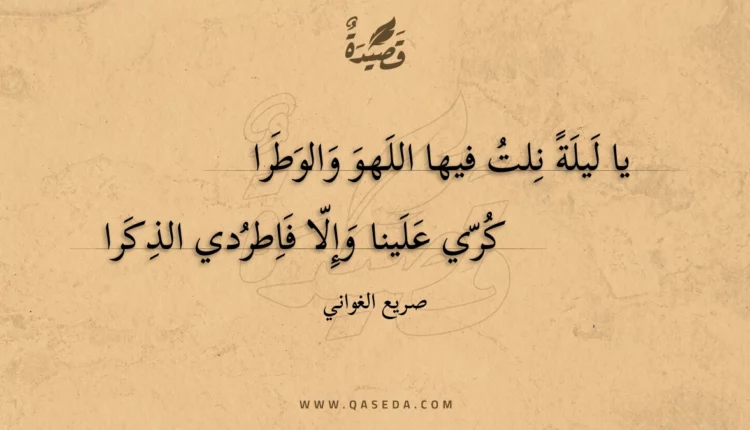 قَصِيْدَةٌ
يا لَيلَةً نِلتُ فيها اللَهوَ وَالوَطَرا
كُرّي عَلَينا وَإِلّا فَاِطرُدي الذِكَرا
صريع الغواني
WWW.QASEDA.COM